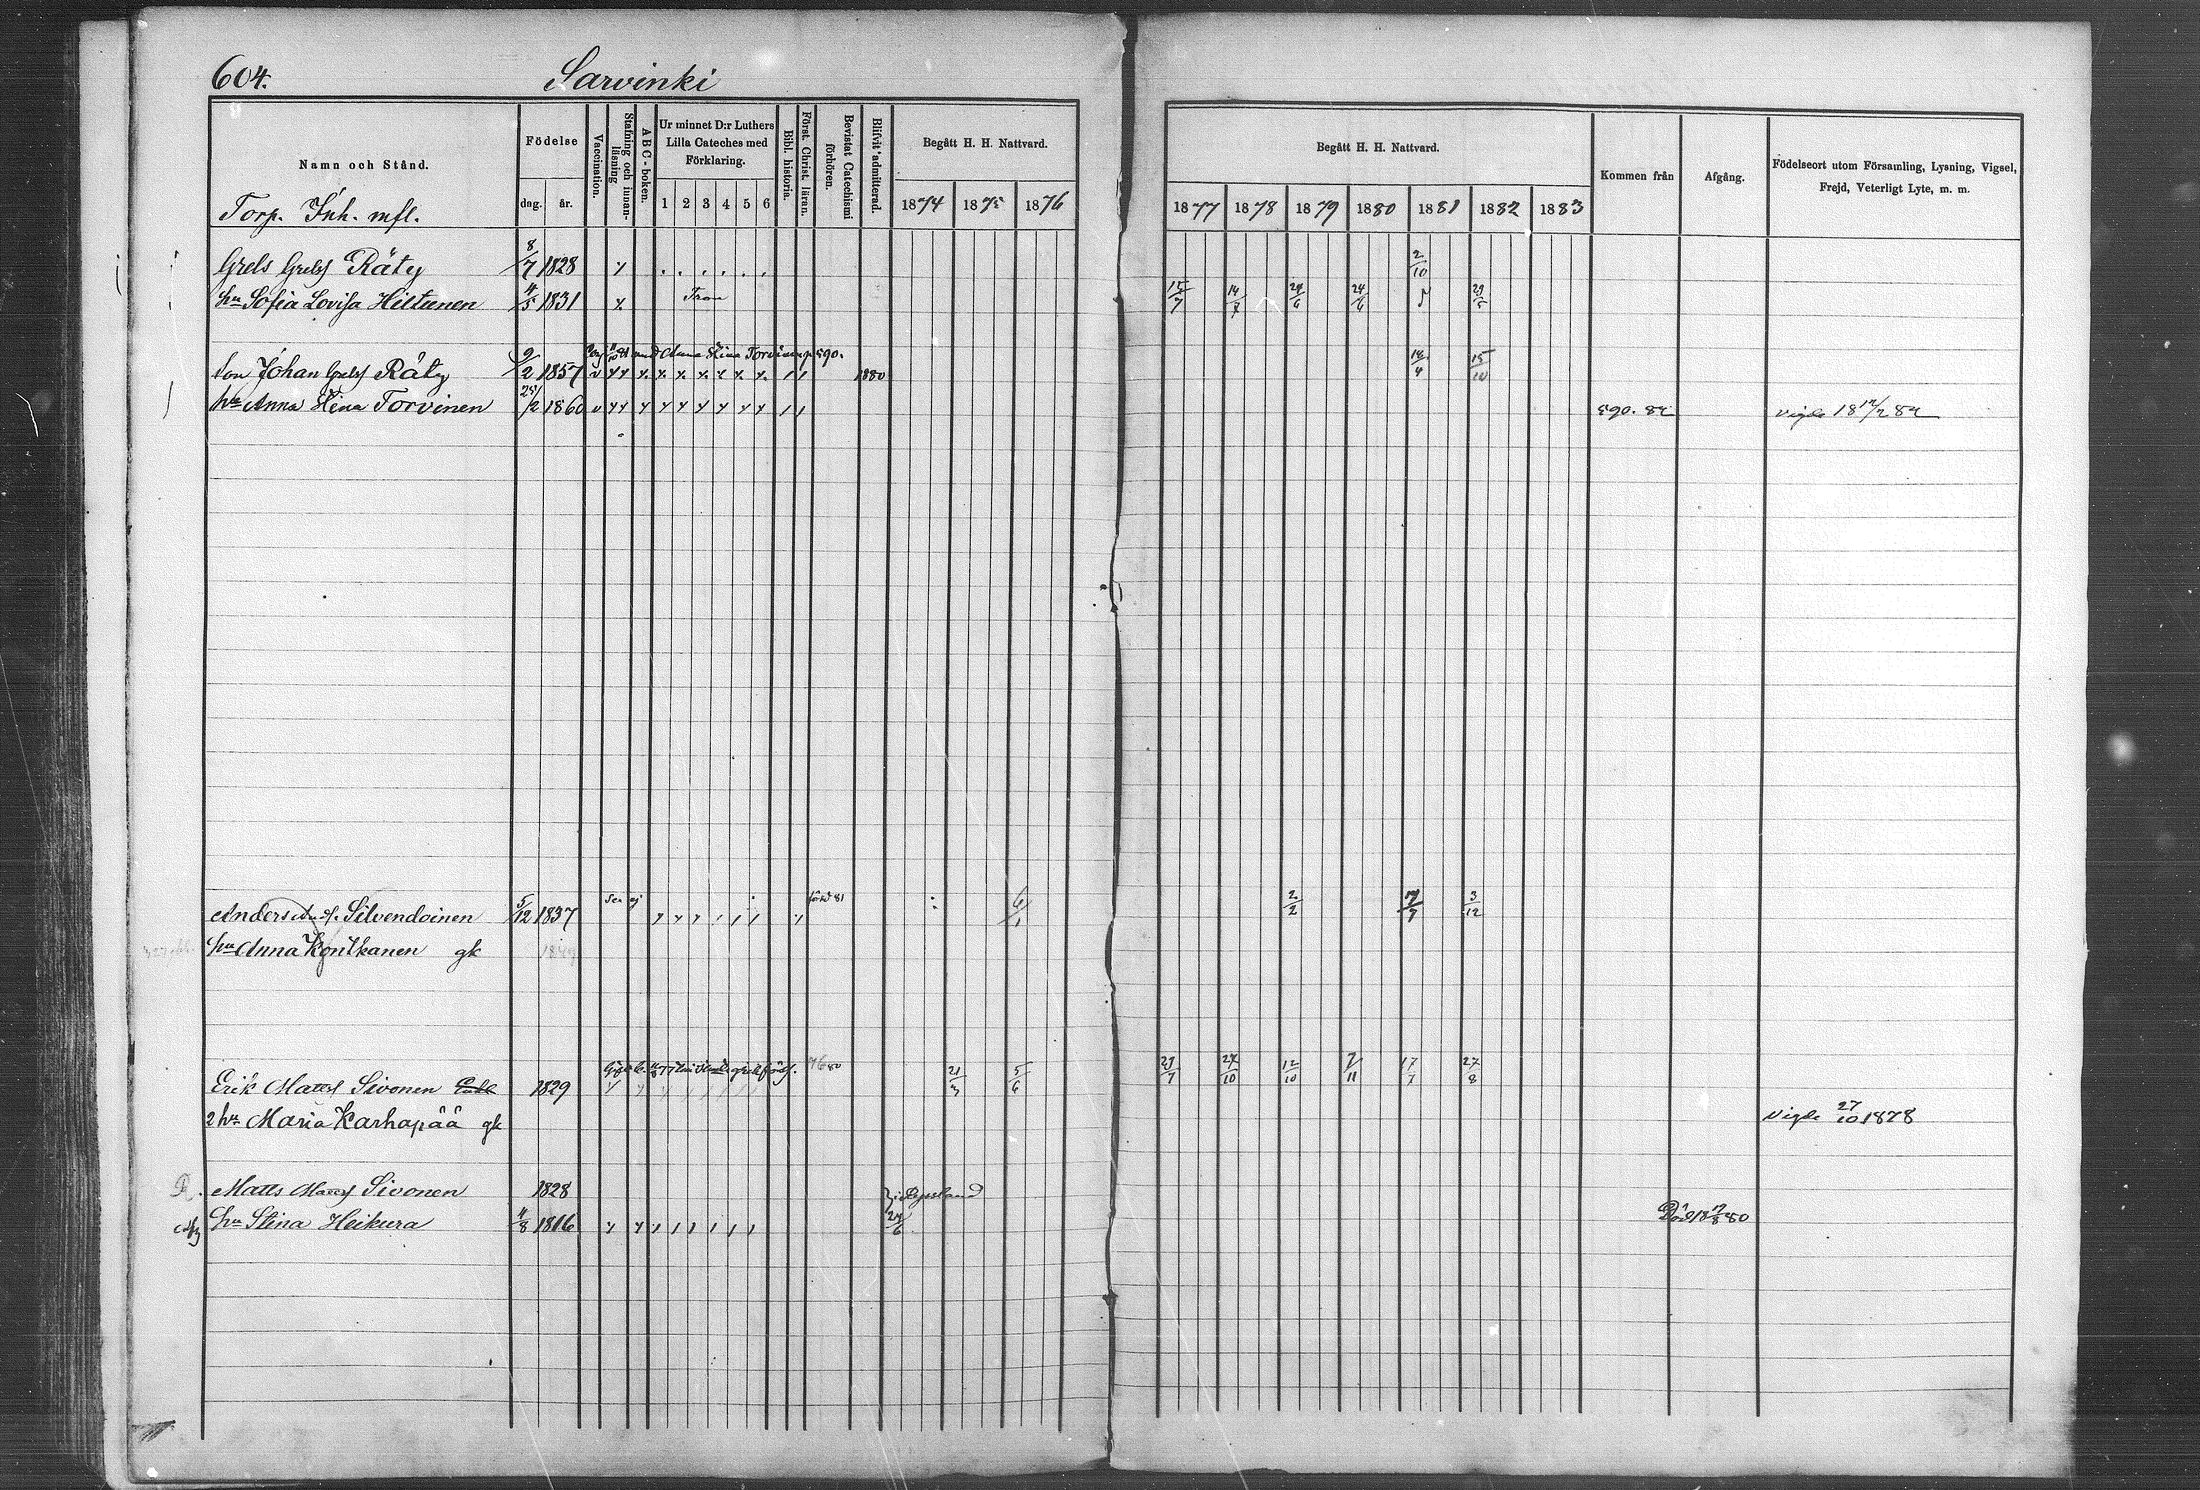 604. Sarvinki
Namn och Stånd.
Födelse
dag. år.
Vaccination.
Stafning och innan-läsning
ABC-boken.
Ur minnet D:r Luthers Lilla Cateches med Förklaring.
1 2 3 4 5 6
Bibl. historia.
Först. Christ. läran.
Bevistat Catechismi förhören.
Blifvit admitterad.
Begått H. H. Nattvard.
1874 1875 1876
Begått H. H. Nattvard.
1877 1878 1879 1880 1881 1882 1883
Kommen från
Afgång.
Födelseort utom Församling, Lysning, Vigsel, Frejd, Veterligt Lyte, m. m.
Torp. Inh. mfl.
Grels Grelsf Räty 8/7 1828 2/10
hu Sofia Lovisa Hiltunen 4/5 1831 15/7 14/7 29/6 24/6 29/5
med Anna Stina Torvinen p. 590.
son Johan Grelsf Räty 9/2 1857 1880 18/4 15/10
hu Anna Stina Torvinen 25/2 1860 590. 82 Vigde 18 12/2 82
Anders Silvendoinen 5/12 1837 81 6/1 2/2 3/12
hu Anna Kontkanen gk
Erik Mattsf Sivonen Enkl 1829 80 21/3 5/6 29/7 27/10 12/10 7/11 17/7 27/8
2 hu Maria Karhapää gk Vigde 27/10 1878
Matts Mattsf Sivonen 1828 i Ryssland
hu Stina Heikura 4/8 1816 24/6 Död 18 17/8 80